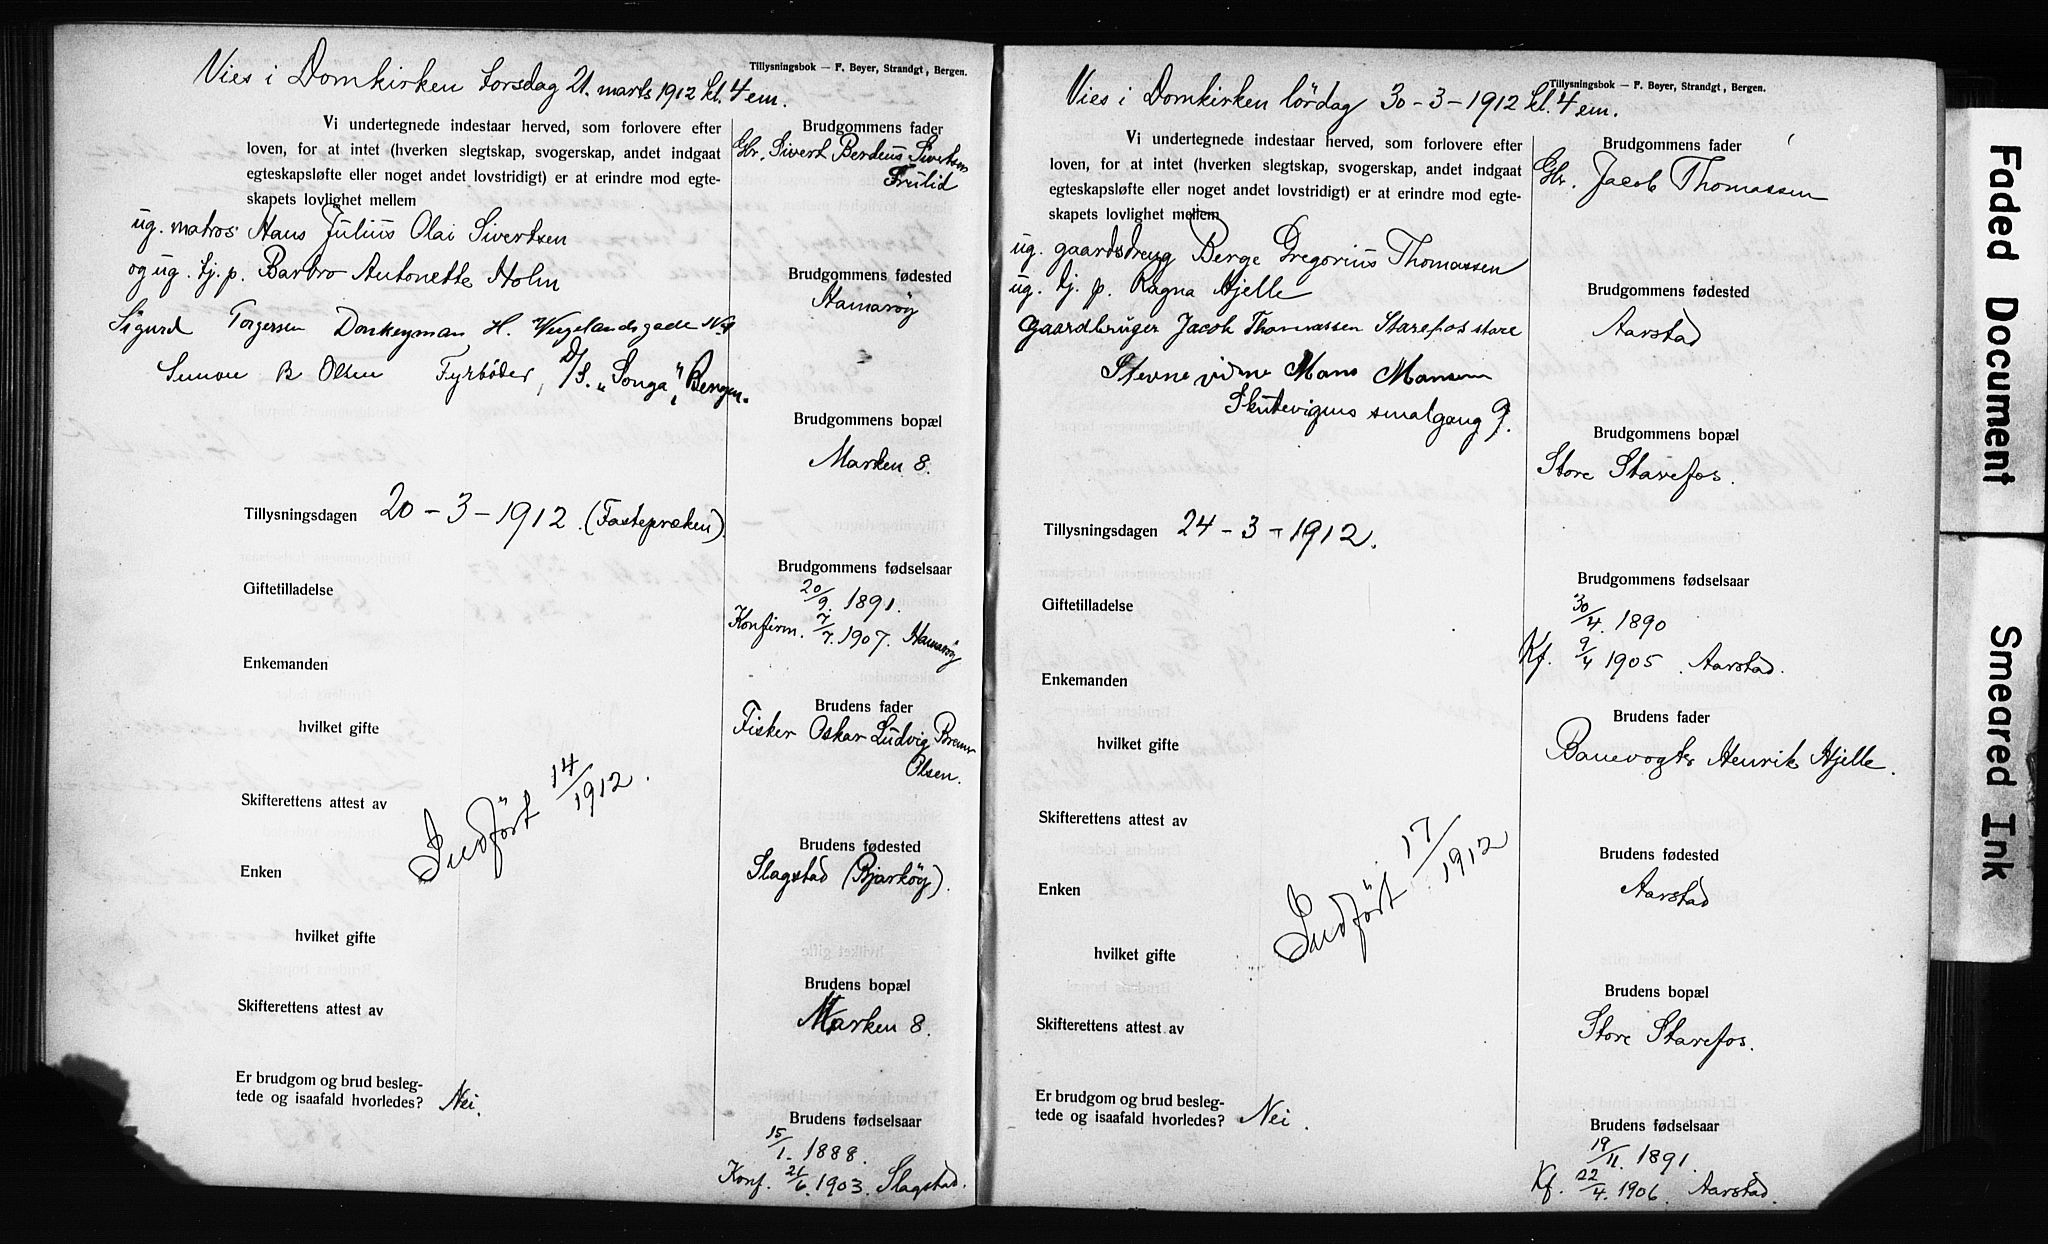 Vies i Domkirken torsdag 21. marts 1912 kl. 4 em.
Tillysningsbok — F. Beyer, Strandgt, Bergen.
Vi undertegnede indestaar herved, som forlovere efter
loven, for at intet (hverken slegtskap, svogerskap, andet indgaat
egteskapsløfte eller noget andet lovstridigt) er at erindre mod egte-
skapets lovlighet mellem
ug. matros Hans Julius Olai Sivertsen
og ug. tj. p. Barbro Antonette Holm
Sigurd Torgersen Donkeyman H. Wergelandsgade
Simon B Olsen Fyrbøder, D/S. „Songa", Bergen.
Tillysningsdagen 20 - 3 - 1912. (Fastepræken).
Giftetilladelse
Enkemanden
hvilket gifte
Skifterettens attest av
Indført 14/1912.
Enken
hvilket gifte
Skifterettens attest av
Er brudgom og brud besleg-
tede og isaafald hvorledes? Nei.
Brudgommens fader
Gbr. Sivert Berdeus Sivertsen
Brudgommens fødested
Hamarøy
Brudgommens bopæl
Marken 8.
Brudgommens fødselsaar
20/9. 1891.
Konfirm. 7/7. 1907. Hamarøy
Brudens fader
Fisker Oskar Ludvig
Olsen.
Brudens fødested
Slagstad (Bjarkøy).
Brudens bopæl
Marken 8.
Brudens fødselsaar
15/1. 1888.
Konf. 21/6. 1903. Slagstad.
Vies i Domkirken lördag 30 - 3 - 1912 kl. 4 em.
Tillysningsbok — F. Beyer, Strandgt, Bergen.
Vi undertegnede indestaar herved, som forlovere efter
loven, for at intet (hverken slegtskap, svogerskap, andet indgaat
egteskapsløfte eller noget andet lovstridigt) er at erindre mod egte-
skapets lovlighet mellem
ug. gaardsdreng Berge Gregorius Thomassen
ug. tj. p. Ragna Hjelle
gaardbruger Jacob Thomassen Starefos store
Stevnevidne Mons Monsen
Skutevigens smalgang 9.
Tillysningsdagen 24 - 3 - 1912.
Giftetilladelse
Enkemanden
hvilket gifte
Skifterettens attest av
Indført 17/1912
Enken
hvilket gifte
Skifterettens attest av
Er brudgom og brud besleg-
tede og isaafald hvorledes? Nei.
Brudgommens fader
Gbr. Jacob Thomassen
Brudgommens fødested
Aarstad
Brudgommens bopæl
Store Starefos.
Brudgommens fødselsaar
30/4. 1890
Kf. 9/4 1905. Aarstad.
Brudens fader
Banevogter Henrik Hjelle.
Brudens fødested
Aarstad
Brudens bopæl
Store Starefos.
Brudens fødselsaar
19/11. 1891.
Kf. 22/4. 1906. Aarstad.
Faded Document
Smeared Ink